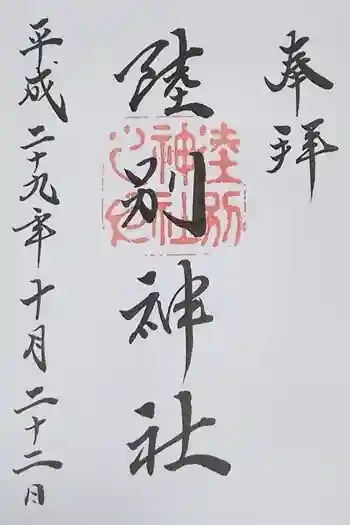 奉拝
陸別神社
平成二十九年十月二十二日
陸別
神社
之印